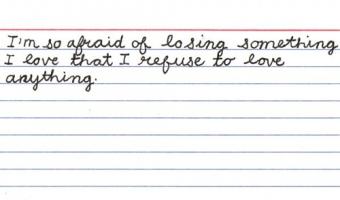 I'm so afraid of losing something
I love that I refuse to love
anything.